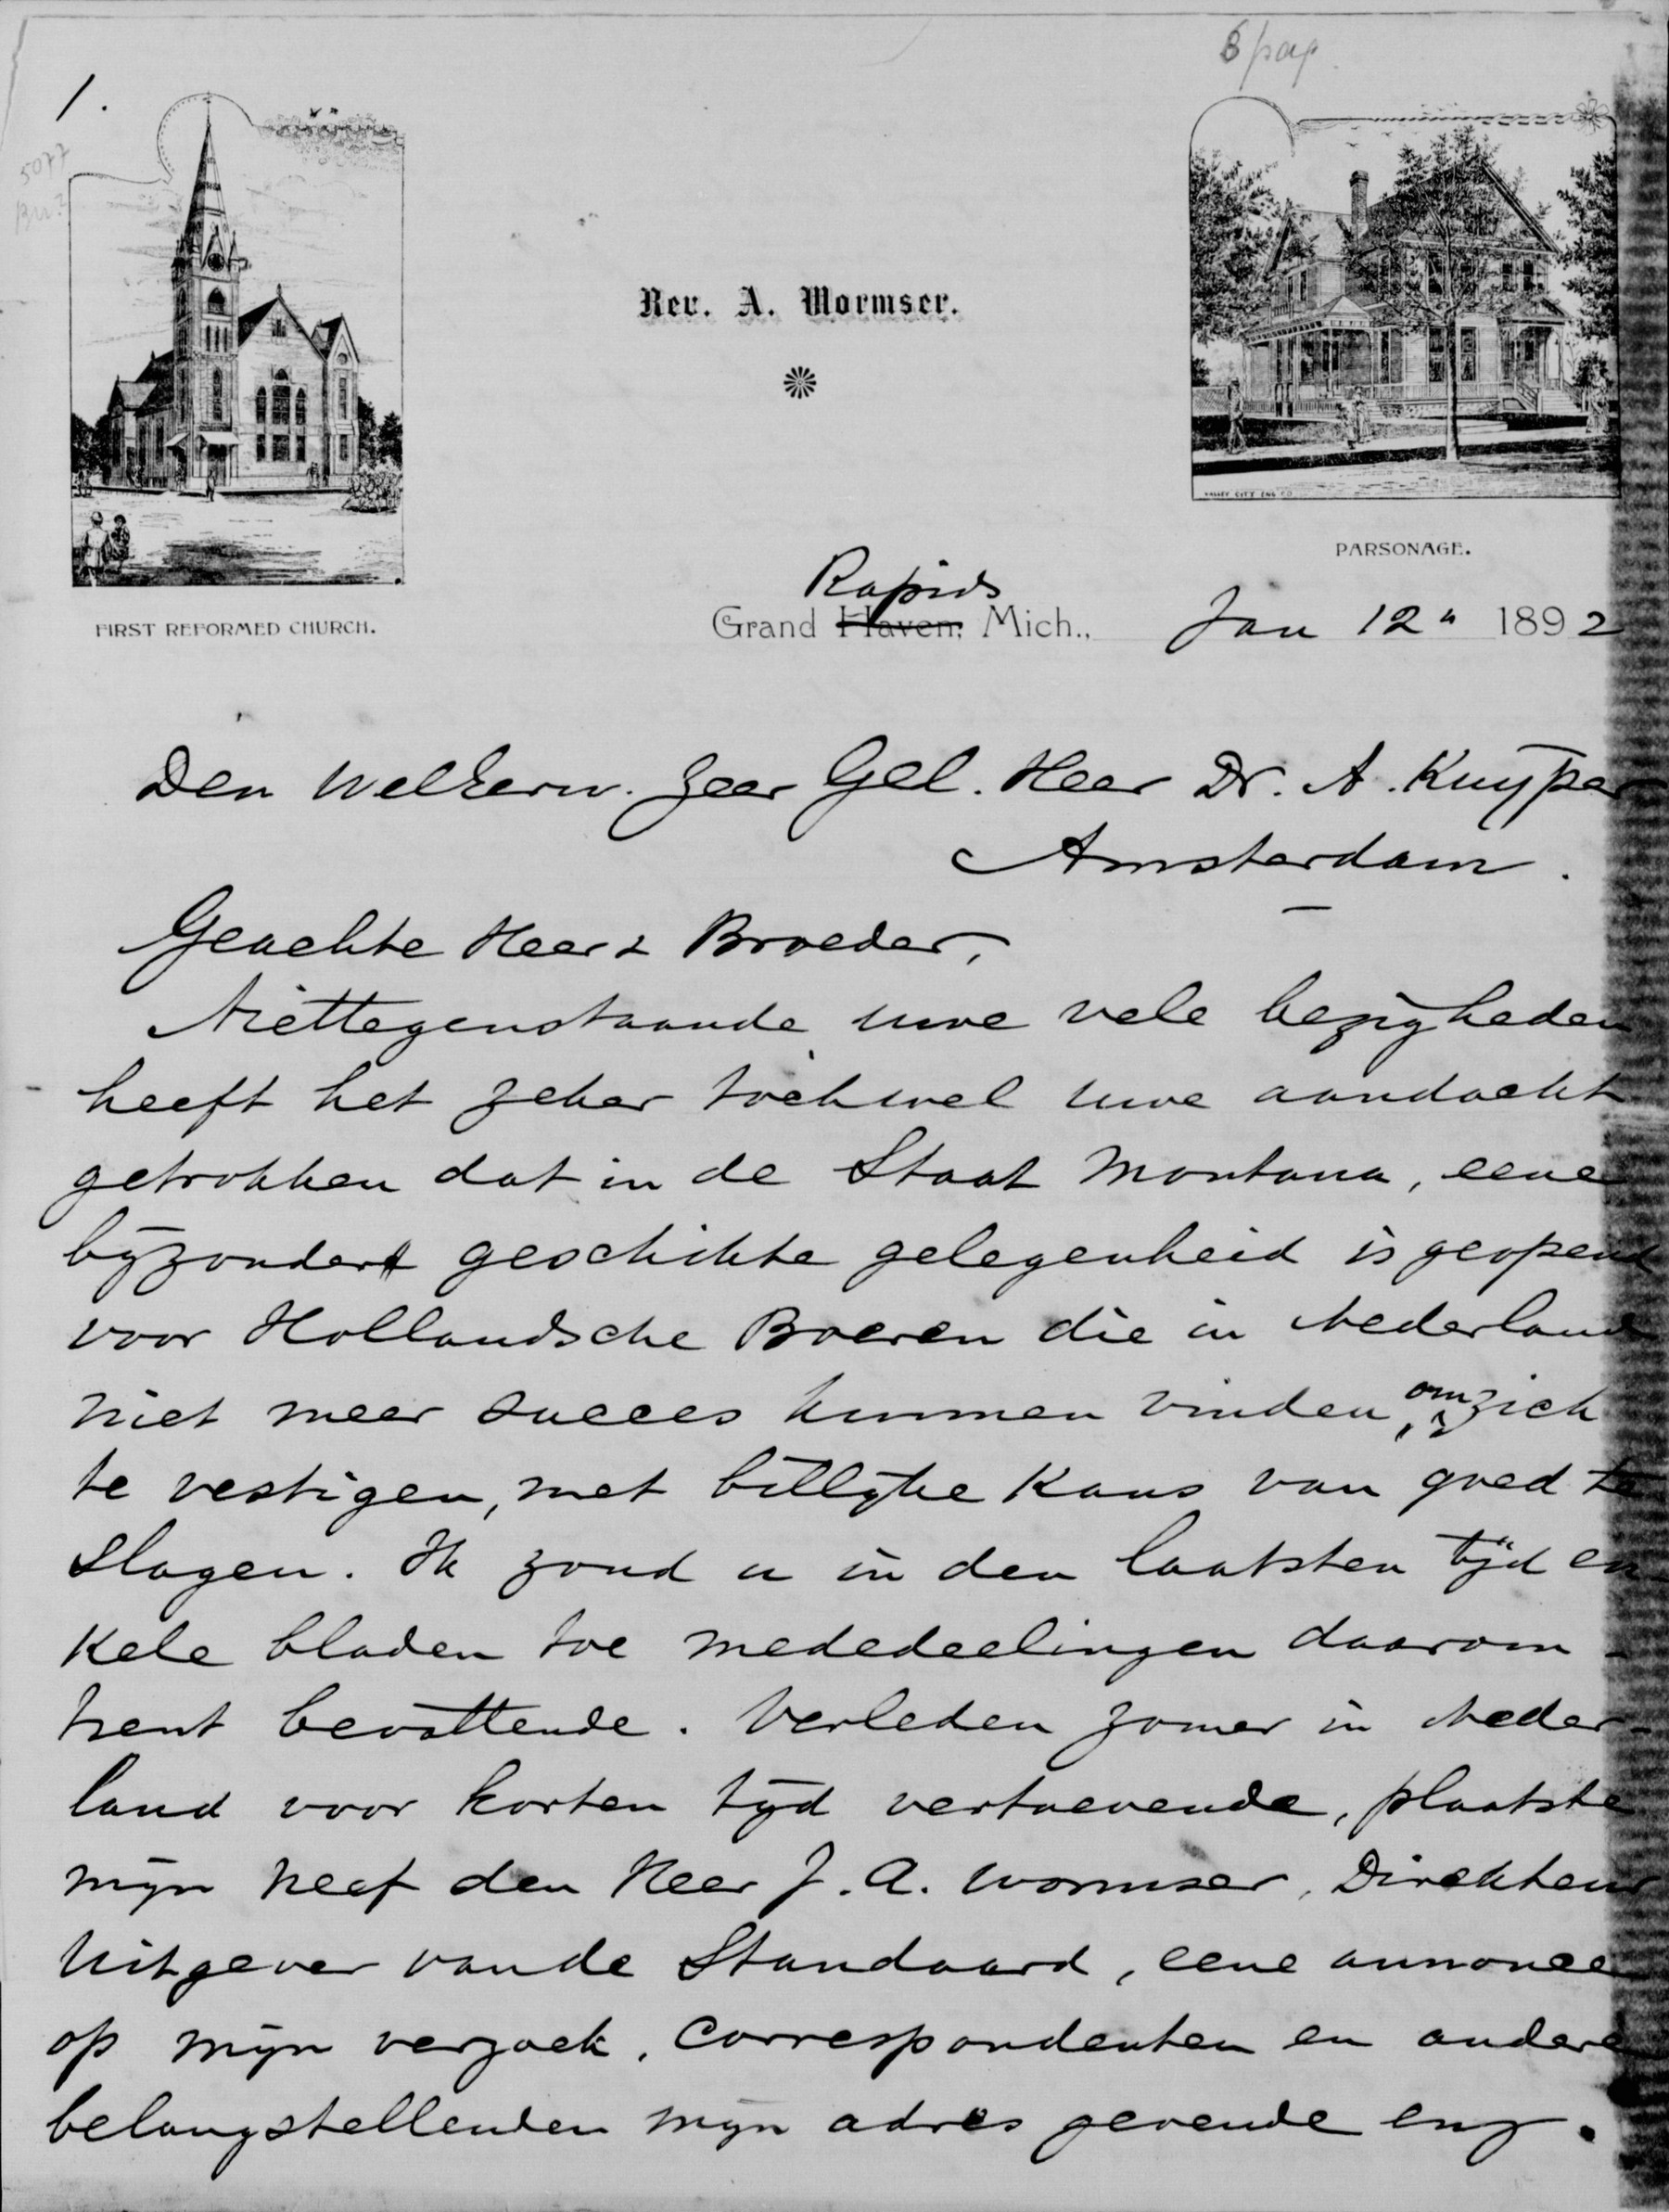 6 pag.
1.
5077
Rev. A. Wormser.
VALLEY CITY ENG CO
PARSONAGE.
FIRST REFORMED CHURCH.
Rapids
Grand Haven, Mich., Jan 12" 1892
Den WelEerw. Zeer Gel. Heer Dr. A. Kuyper
Amsterdam.
Geachte Heer & Broeder,
Niettegenstaande uwe vele bezigheden
heeft het zeker toch wel uwe aandacht
getrokken dat in de Staat Montana, eene
byzonder geschikte gelegenheid is geopend
voor Hollandsche Boeren die in Nederland
niet meer succes kunnen vinden, om zich
te vestigen, met billyke kans van goed te
slagen. Ik zond u in den laatsten tijd en-
kele bladen toe mededeelingen daarom-
trent bevattende. Verleden zomer in Neder-
land voor korten tyd vertoevende, plaatste
mijn neef den Heer J. A. Wormser, Direkteur
Uitgever van de Standaard, eene annonce
op mijn verzoek, correspondenten en andere
belangstellenden mijn adres gevende enz.